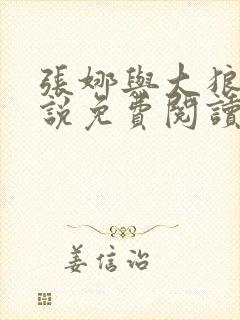 張娜與大狼
說免費閱讀
姜信治